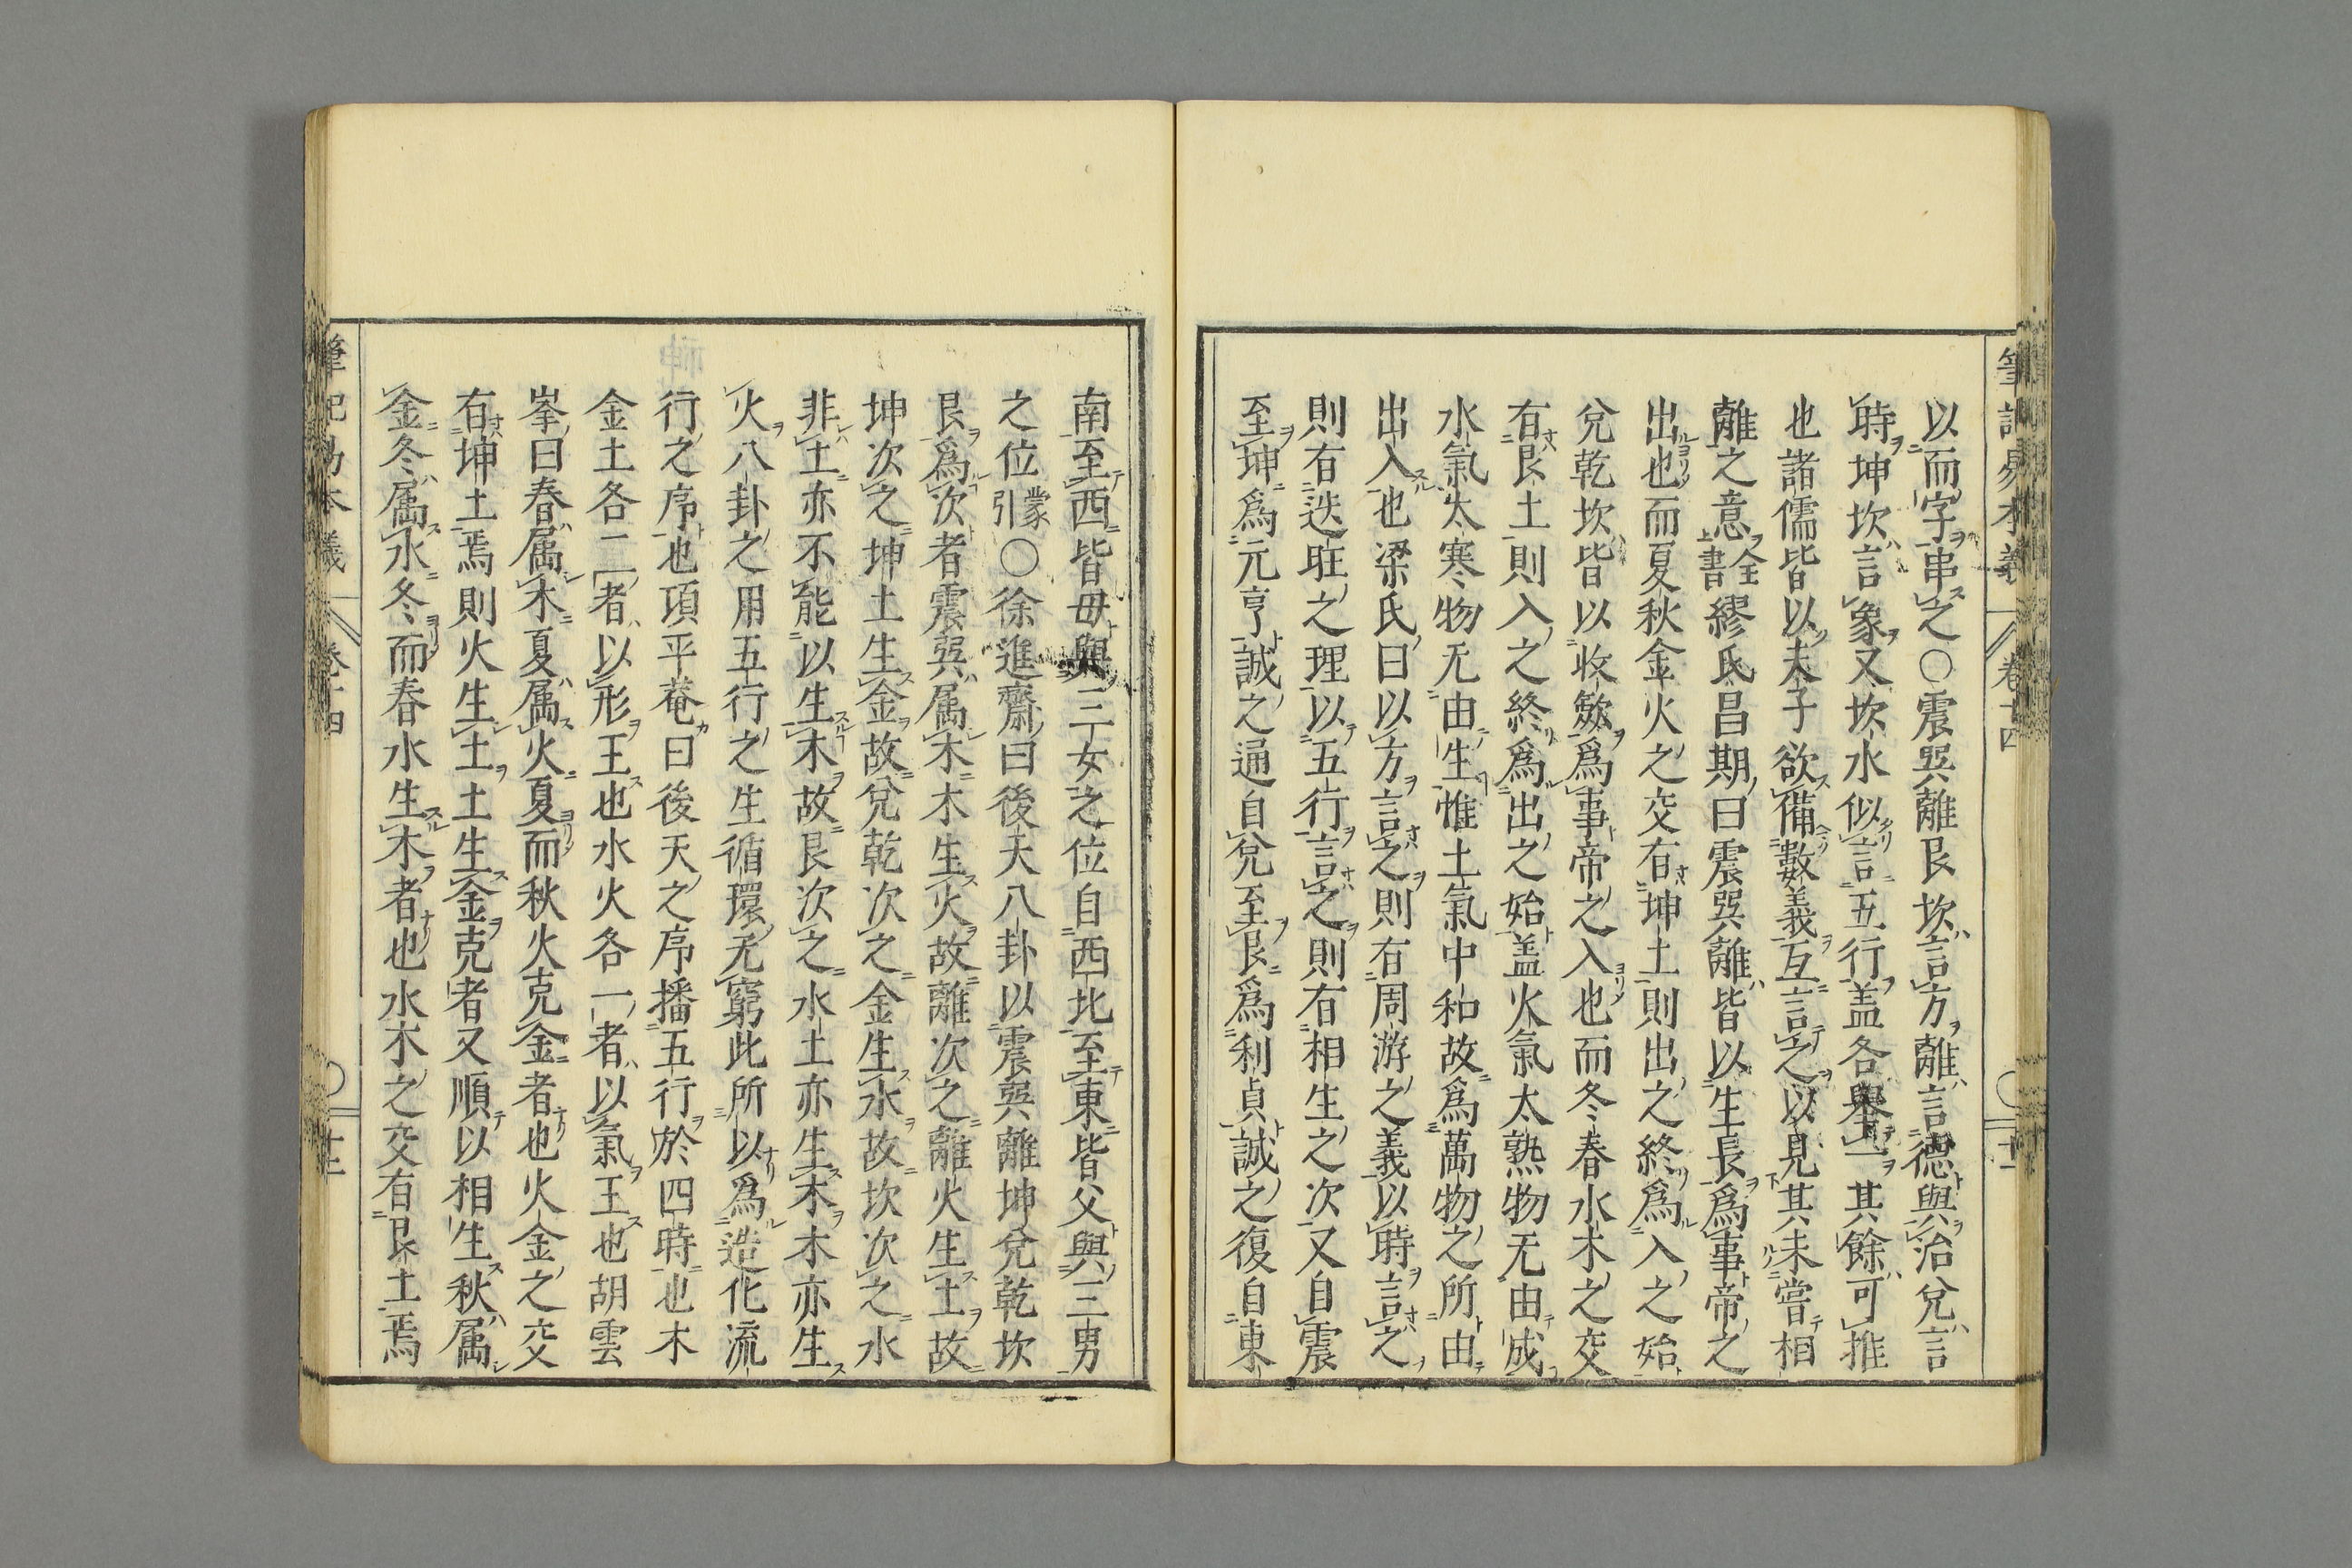 以而字串之〇震巽離艮坎言方離言德與治兌言
時坤坎言象又坎水似言五行盖各舉一其餘可推
也諸儒皆以夫子欲備數義互言之以見其未嘗相
離之意全書繆氏昌期曰震巽離皆以生長爲事帝之
出也而夏秋金火之交有坤土則出之終爲入之始
兌乾坎皆以收斂爲事帝之入也而冬春水木之交
有艮土則入之終爲出之始盖火氣太熟物无由成
水氣太寒物无由生惟土氣中和故爲萬物之所由
出入也梁氏曰以方言之則有周游之義以時言之
則有迭旺之理以五行言之則有相生之次又自震
至坤爲元亨誠之通自兌至艮爲利貞誠之復自東
南至西皆母與三女之位自西北至東皆父與三男
之位蒙引〇徐進齋曰後天八卦以震巽離坤兌乾坎
艮爲次者震巽属木木生火故離次之離火生土故
坤次之坤土生金故兌乾次之金生水故坎次之水
非土亦不能以生木故艮次之水土亦生木木亦生
火八卦之用五行之生循環无窮此所以爲造化流
行之序也項平菴曰後天之序播五行於四時也木
金土各二者以形王也水火各一者以氣王也胡雲
峯曰春属木夏属火夏而秋火克金者也火金之交
有坤土焉則火生土土生金克者又順以相生秋属
金冬属水冬而春水生木者也水木之交有艮土焉
筆記易本義 卷十四